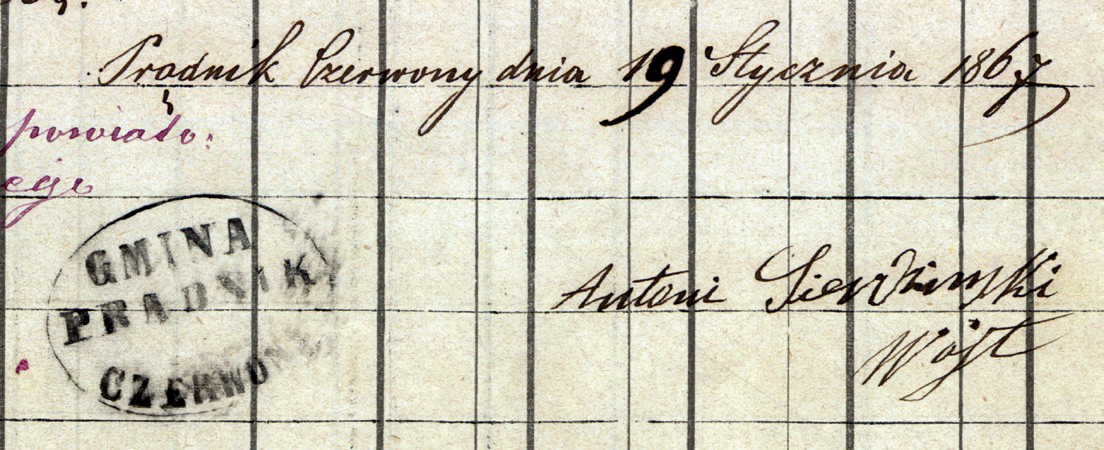 Prądnik Czerwony dnia 19 Stycznia 1867
powiato:
ego
GMINA
PRADNIK
CZERWONY
Antoni
Wójt